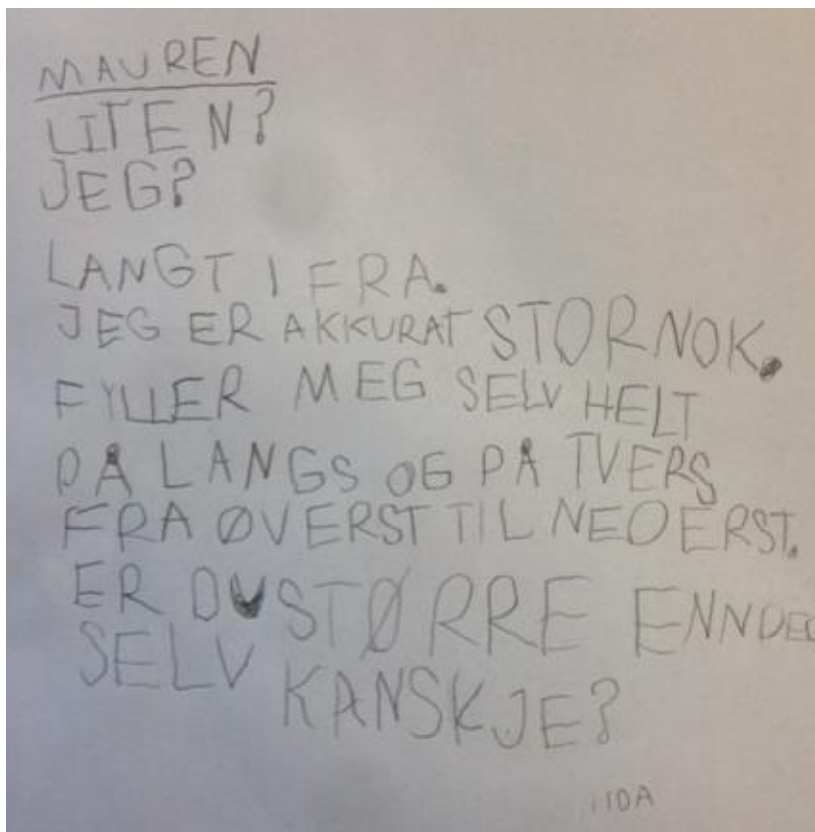 MAUREN
LITEN?
JEG?
LANGT I FRA.
JEG ER AKKURAT STOR NOK.
FYLLER MEG SELV HELT
PÅ LANGS OG PÅ TVERS
FRA ØVERST TIL NEDERST.
ER DU STØRRE ENN DEG
SELV KANSKJE?